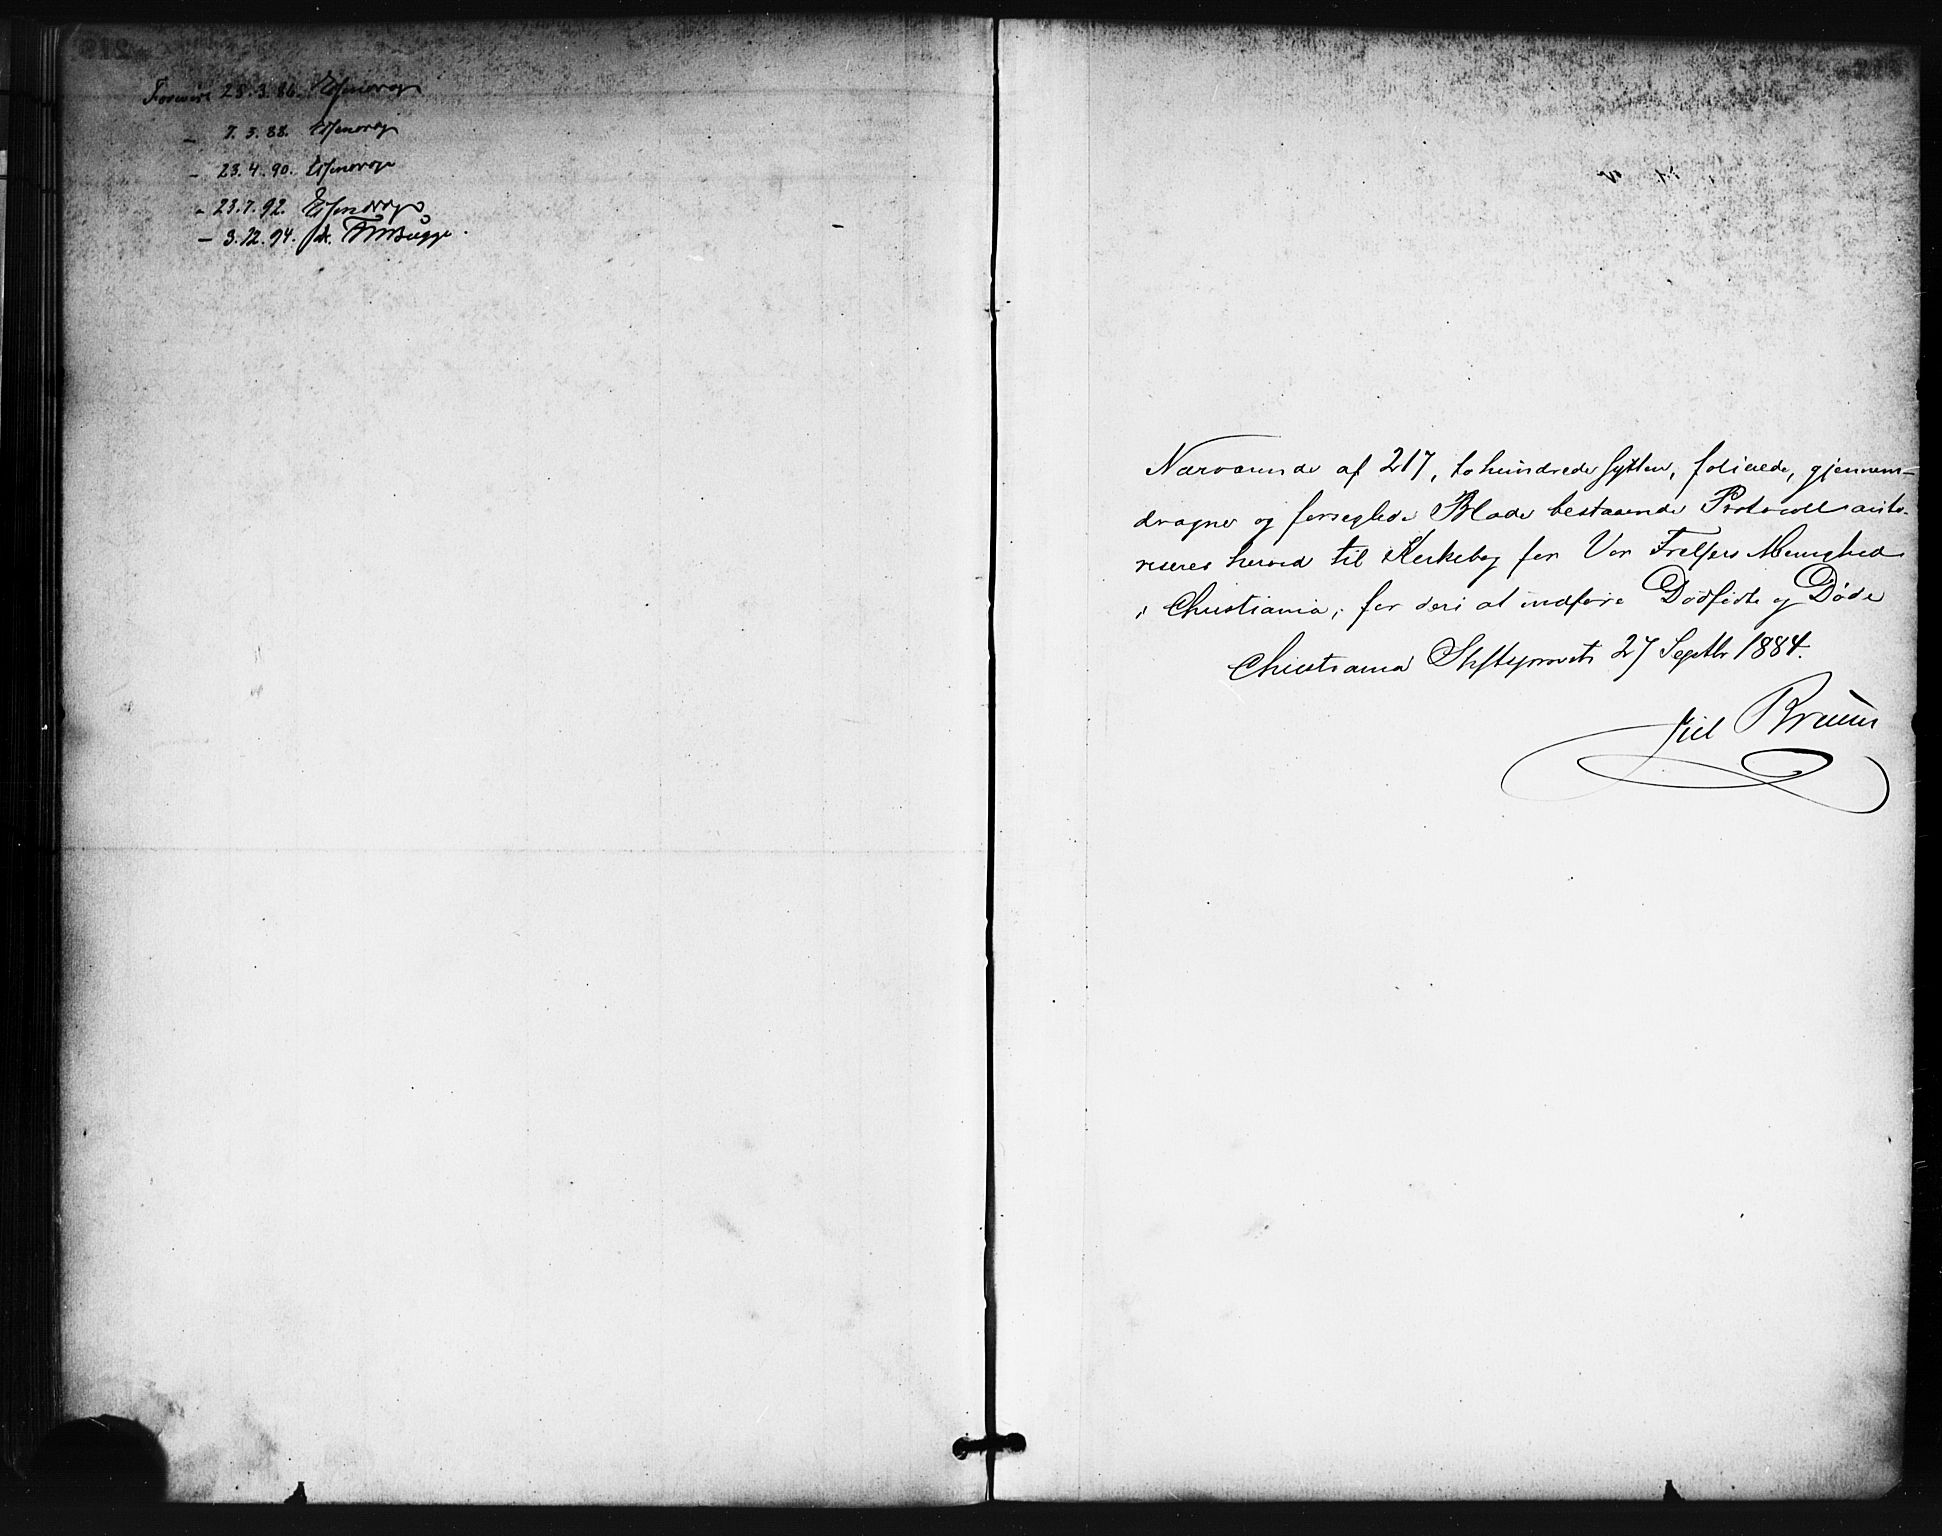 Forevist 25.3.86. Essendrop
- 7.3.88. Essendrop
- 23.4.90. Essendrop
- 23.7.92. Essendrop
- 3.12.94. fk. Bugge.
Nærværende af 217, tohundrede sytten, folierede, gjennem-
dragne og forseglede Blade bestaaende Protocoll auto-
riseres herved til Kirkebog for Vor Frelsers Menighed
i Christiania, for deri at indføre Dødfødte og Døde
Christiania Stiftsprovsti 27 Septbr 1884.
Jul Bruun